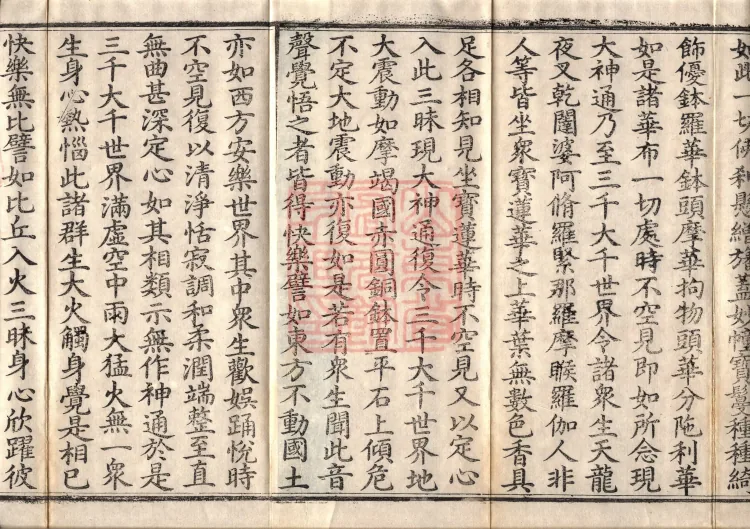 如此一切佛剎懸繒旛蓋妙幢寶鬘種種綺
飾優鉢羅華鉢頭摩華拘物頭華分陁利華
如是諸華布一切處時不空見即如所念現
大神通乃至三千大千世界令諸衆生天龍
夜叉乾闥婆阿脩羅緊那羅摩睺羅伽人非
人等皆坐衆寶蓮華之上華葉無數色香具
足各相知見坐寶蓮華時不空見又以定心
入此三昧現大神通復令三千大千世界地
大震動如摩竭國赤圓銅鉢置平石上傾危
不定大地震動亦復如是若有衆生聞此音
聲覺悟之者皆得快樂譬如東方不動國土
亦如西方安樂世界其中衆生歡娛踊悅時
不空見復以清淨恬寂調和柔潤端整至直
無曲甚深定心如其相類示無作神通於是
三千大千世界滿虛空中雨大猛火無一衆
生身心熱惱此諸群生大火觸身覺是相已
快樂無比譬如比丘入火三昧身心欣躍彼